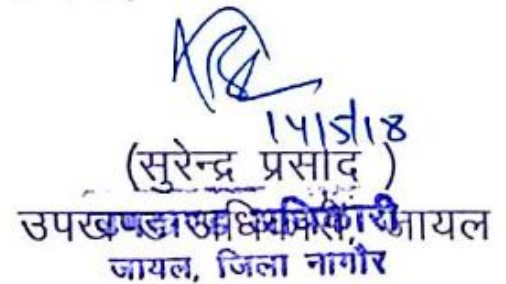 14/5/18
(सुरेन्द्र प्रसाद )
उपखण्ड अधिकारी, जायल
जायल, जिला नागौर